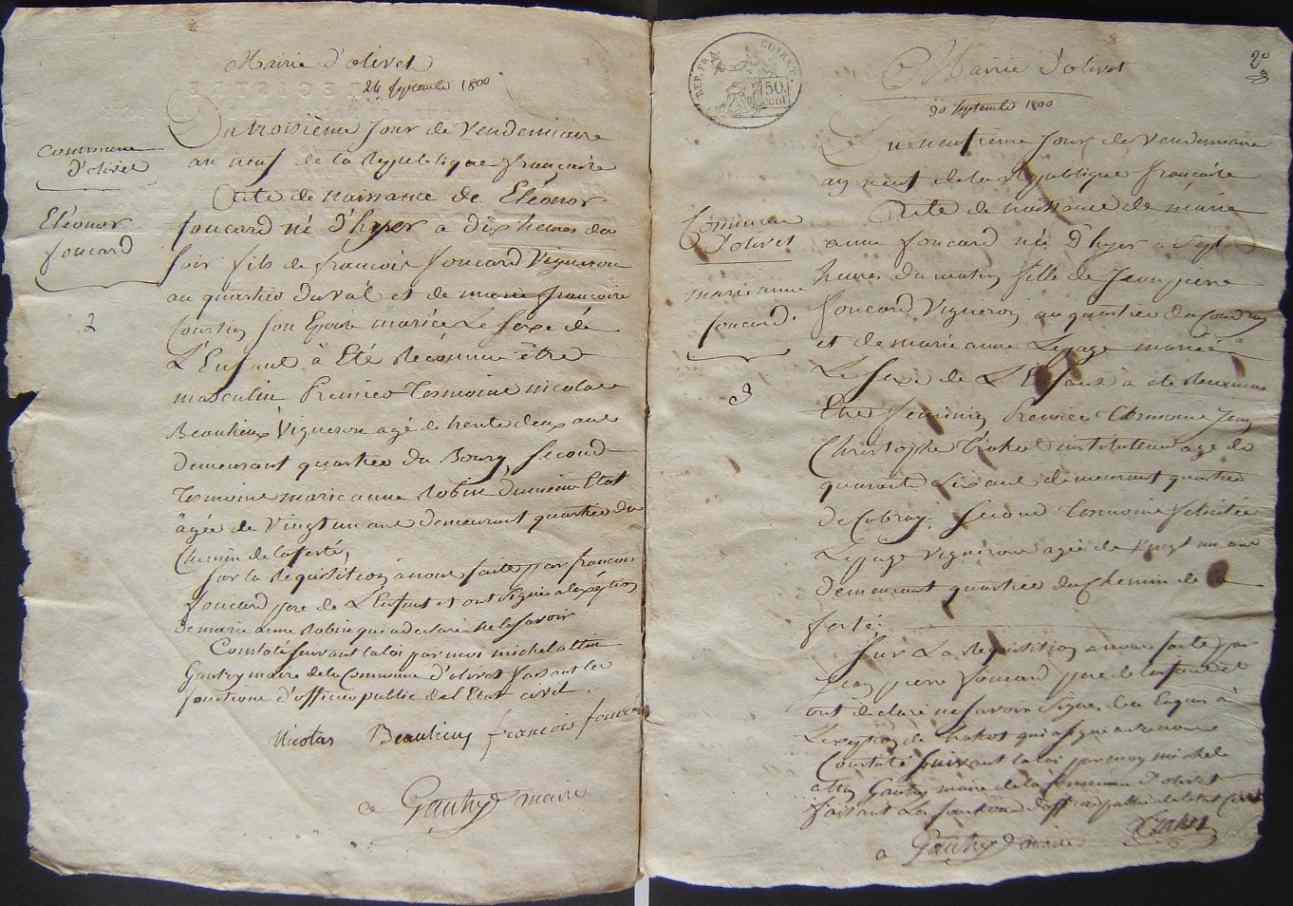 Mairie d'olivet
24 Septembre 1800
Du troisième Jour de Vendemiaire
an neuf de la Republique françoise
Commune
d'olivet
Acte de naissance de Eléonor
foucard né d'hyer a dix heures du
Eléonor
foucard
soir fils de francois foucard Vigneron
au quartier Du val et de marie francoise
2
Courtin son Epouse mariée Le sexe de
L'Enfant à Eté Reconnue être
masculin Premier Temoine nicolas
Beaulieux Vigneron agé de trente deux ans
demeurant quartier du Bourg, second
Temoine marie anne Robin
âgée de Vingt un ans demeurant quartier du
Chemin de la ferté,
sur la Requisition a nous faite par francois
foucard pere de L'Enfant et ont signé a lexeption
de marie anne Robin qui a declaré ne le savoir
Constaté suivant la loi par moi michel
Gautry maire de la Commune d'olivet faisant les
fonctions d'officier public de l'Etat civil.
Nicolas Beaulieux françois foucard
Gautry maire
REP. FRA.
50.
20
3
Mairie d'olivet
30 Septembre 1800
Du neuvième Jour de Vendemiaire
an neuf de la Republique francoise
Commune
d'olivet
Acte de naissance de marie
anne foucard née d'hyer a sept
marie anne
foucard.
heures du matin fille de Jean pierre
foucard Vigneron au quartier du
et de marie anne Lepage mariée
3
Le sexe de L'Enfant a eté Reconnue
Etre feminin Premier Temoine Jean
Christophe instituteur agé de
quarante six ans demeurant quartier
de Cobray, second Temoine felicitée
Lepage Vigneronne agée de Vingt un ans
demeurant quartier du Chemin de la
ferté.
sur La Requisition a nous faite par
Jean pierre foucard pere de lenfant et
ont declaré ne savoir signer
Constaté suivant la loi par moy michel
Gautry maire de la Commune d'olivet
faisant La fonction d'officier public de letat civil
Gautry maire